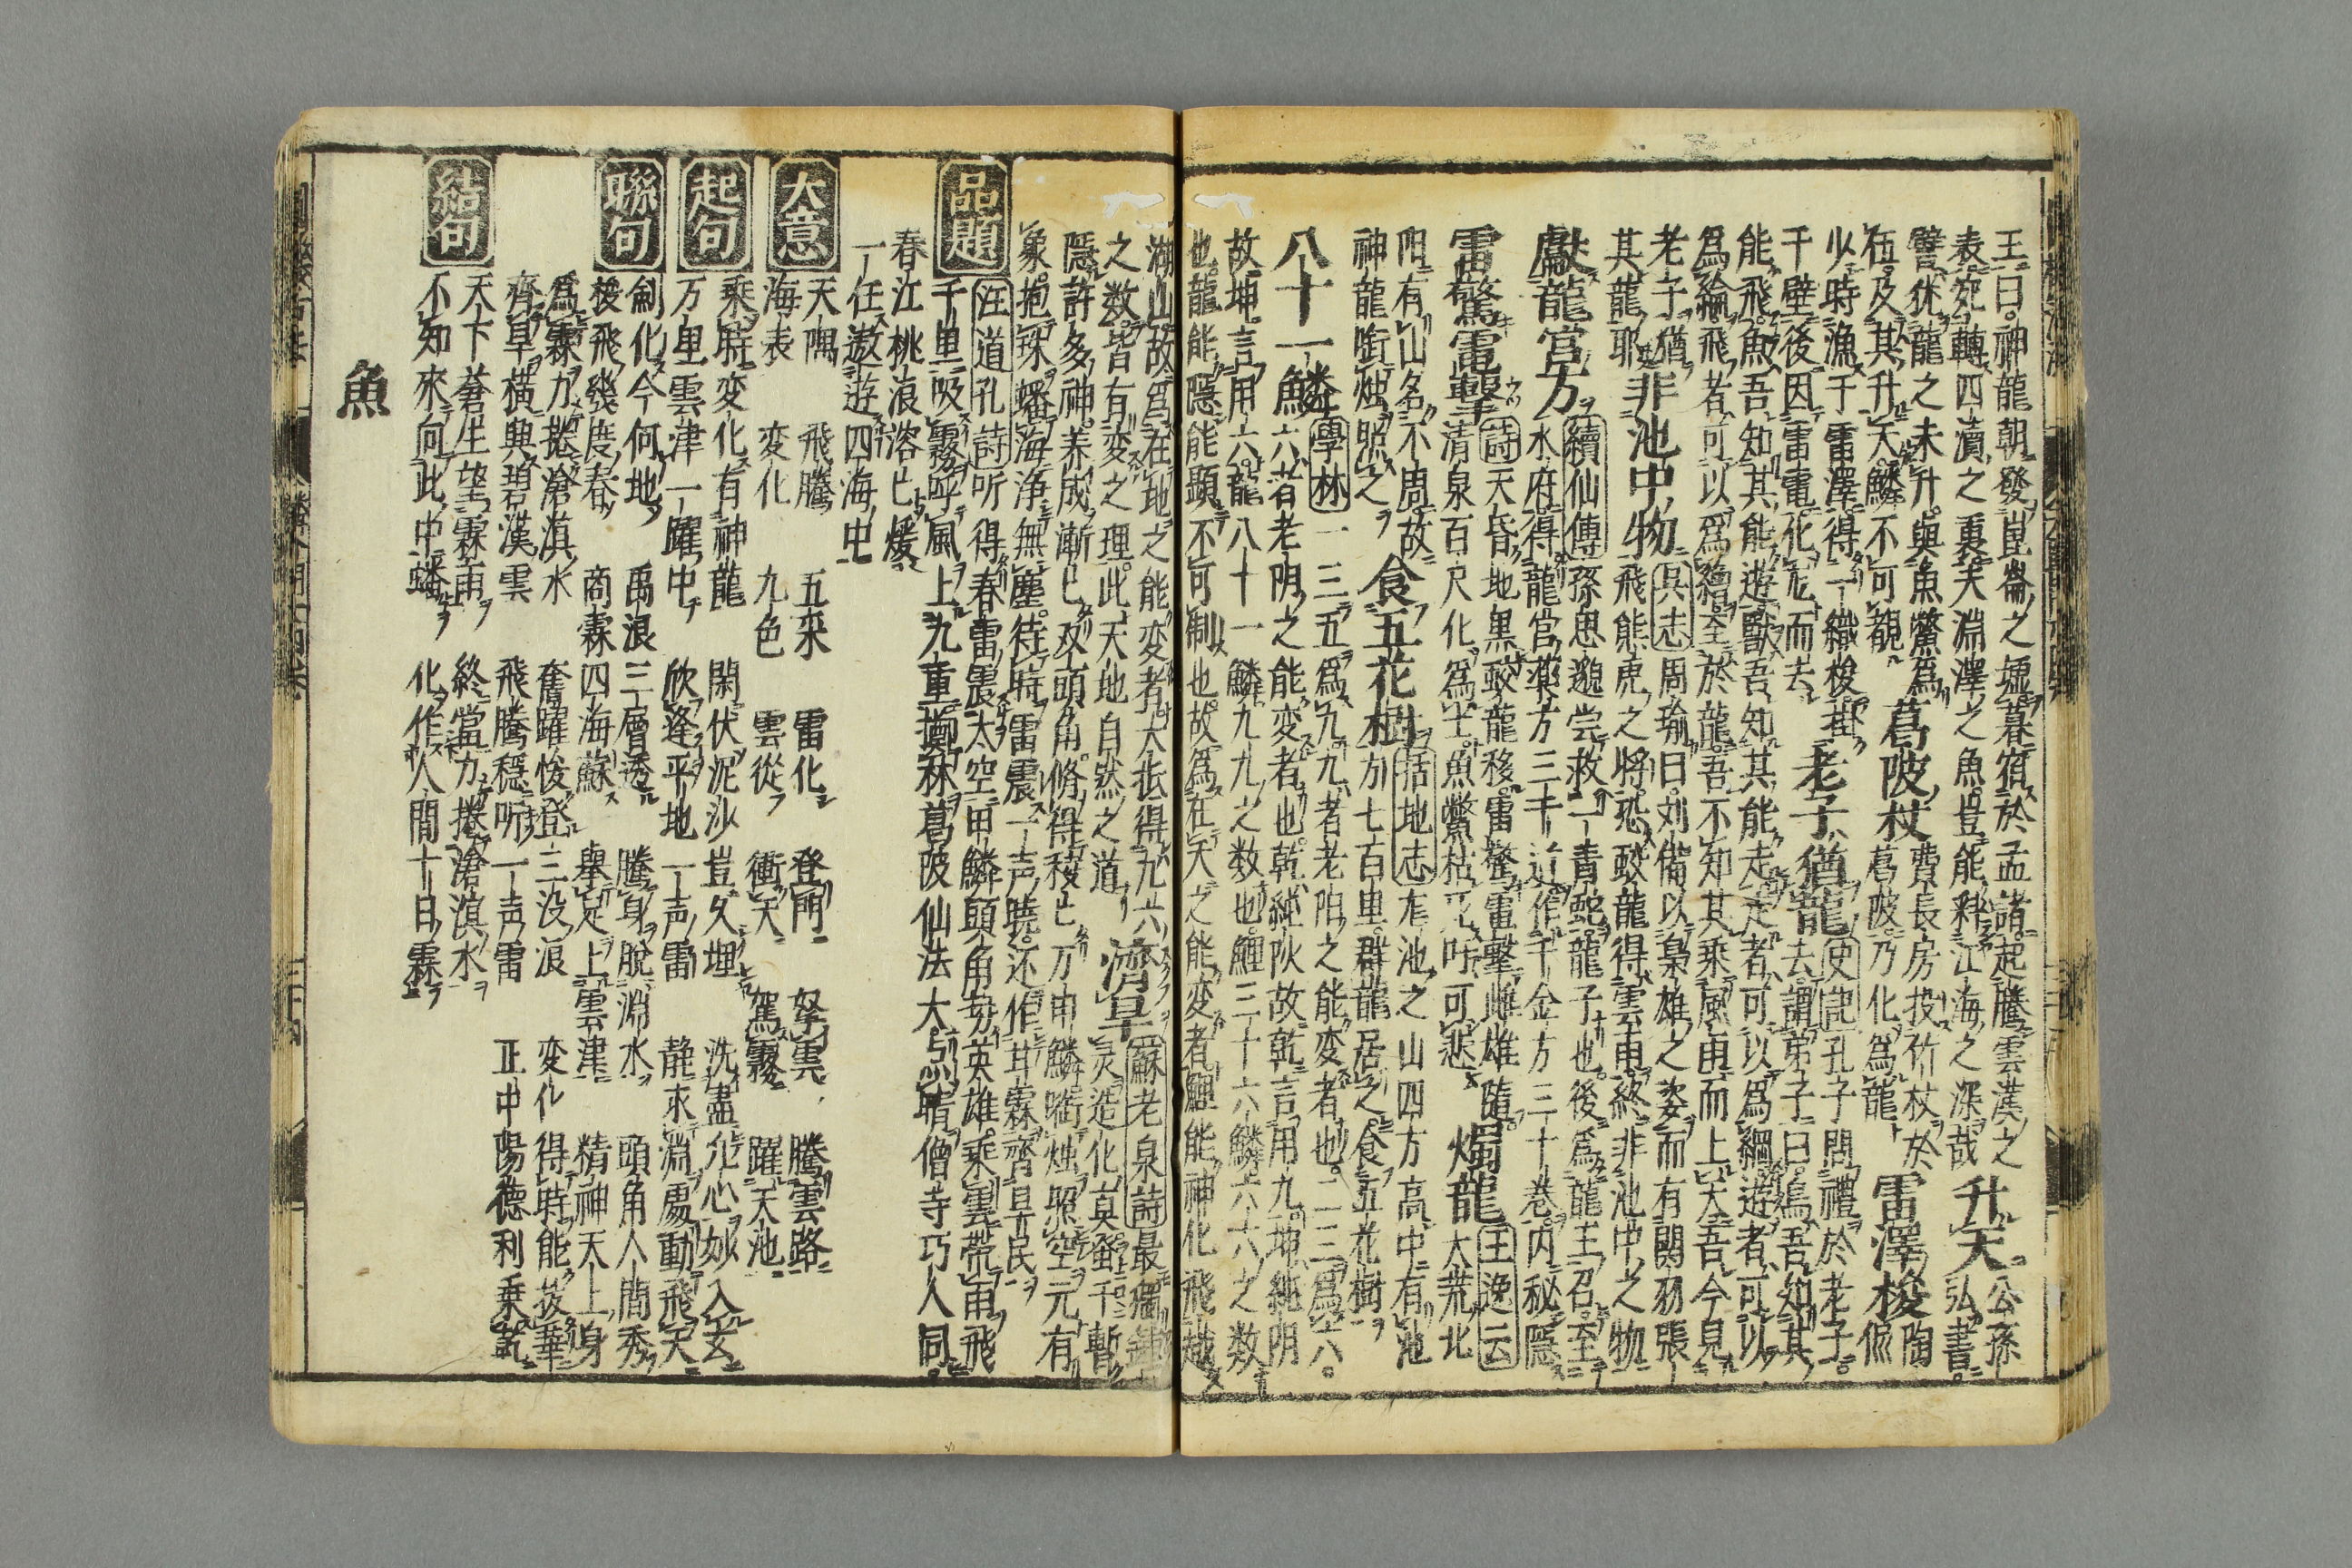 王曰神龍朝發崑崙之墟暮宿於孟諸起騰雲漢之
表宛轉四瀆之裏夫淵澤之魚豈能料江海之深哉 升天 公孫弘書
譬猶龍之未升與魚鱉為
伍及其升天鱗不可覩 葛陂杖 費長房投竹杖於葛陂乃化為龍 雷澤梭 陶侃
少時漁于雷澤得一織梭掛
千壁後因雷電化龙而去 老子猶龍 史記 孔子問禮於老子
去謂弟子曰鳥吾知其
能飛魚吾知其能遊獸吾知其能走走者可以為綱遊者可以
為綸飛者可以為矰至於龍吾不知其乘風雨而上天吾今見
老子猶
其龍耶 非池中物 吳志 周瑜曰刘備以梟雄之姿而有関羽張
飛熊虎之將恐蛟龍得雲雨終非池中之物
獻龍宮方 續仙傳 孫思邈尝救一青蛇龍子也後為龍王召至
水府得龍宮藥方三十 近作千金方三十卷内秘隱
雷驚電擊 詩 天昏地黒蛟龍移雷驚電擊雌雄隨
清泉百尺化為土魚鱉枯死吁可悲 燭龍 王逸云 大荒北
阳有山名不周故
神龍啣烛照之 食五花樹 括地志 龙池之山四方高中有池
方七百里群龍居之食五花樹
八十一鱗 學林 一三五為九九者老阳之能変者也二三為六
六者老阴之能変者也乾純阳故乾言用九坤純阴
故坤言用六龍八十一鱗九九之数也鯉三十六鱗六六之数
也龍能隱能顕不可制也故為在天之能変者鯉能神化飛越
湖山故為在地之能変者大抵得九六
之数皆有変之理此天地自然之道 濟旱 蘇老泉詩
灵造化莫
隱許多神养成漸巳双頭角脩得稜巳万甲鱗啣烛照空元有
象抱珠蟠海浄無塵待時雷震一声曉还作甘霖齊旱民
汪道孔詩 听得春雷震太空甲鱗頭角英雄乘雲帯雨飛
品題 千里吸霧呼風上九重擲杯葛陂仙法大点晴僧寺巧人同
春江桃浪溶巳煖
一任遨遊四海中
大意 天隅 飛騰 五采 雷化 登門 拏雲 騰雲路
海表 変化 九色 雲從 衝天 駕霧 躍天池
起句 乘時変化有神龍 閑伏泥沙豈久埋 洗盡凢心妙入玄
万里雲津一躍中 欣逢平地一声雷 静求淵處動飛天
聯句 劍化今何地 禹浪三層透 騰身脫淵水 頭角人間秀
梭飛幾度春 商霖四海蘇 舉足上雲津 精神天上身
為霖力捲滄溟水 奮躍悛登三汲浪 変化得時能拔華
齊旱橫興碧漢雲 飛騰穏听一声雷 正中陽德利乗乾
結句 天下蒼生望霖雨 終當力捲滄溟水
不知來向此中蟠 化作人間十日霖
魚